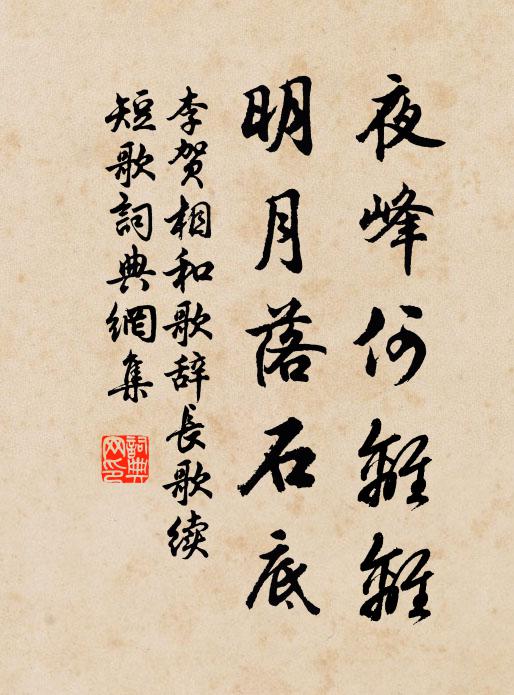 夜峰何離離
明月落石底
李贺相和歌辞長歌续
短歌詞典網集
詞典
网印